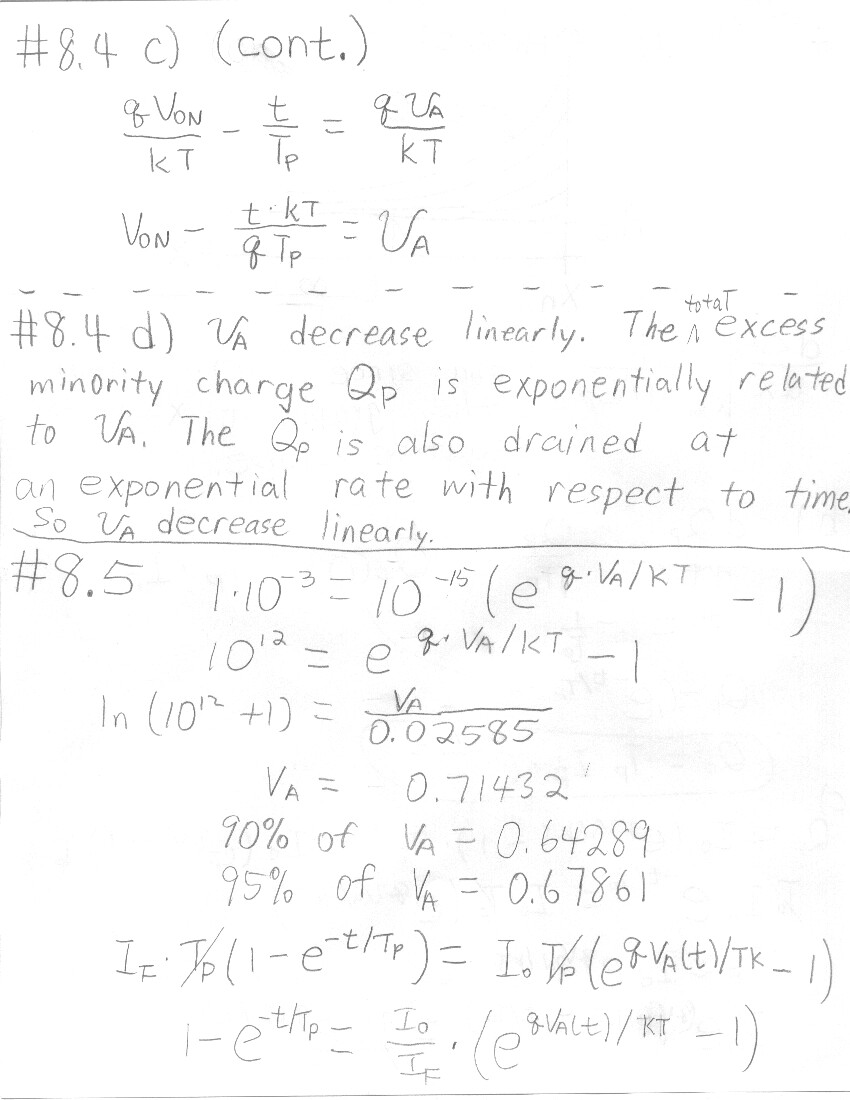 #8.4 c) (cont.)
qV_ON/kT - t/τ_p = qv_A/kT
V_ON - t·kT/qτ_p = v_A
#8.4 d) v_A decrease linearly. The total excess
minority charge Q_p is exponentially related
to v_A. The Q_p is also drained at
an exponential rate with respect to time.
So v_A decrease linearly.
#8.5 1·10^-3 = 10^-15 (e^(q·V_A/KT) - 1)
10^12 = e^(q·V_A/KT) - 1
ln (10^12 +1) = V_A/0.02585
V_A = 0.71432
90% of V_A = 0.64289
95% of V_A = 0.67861
I_F·τ_p(1-e^(-t/τ_p)) = I_o τ_p(e^(qV_A(t)/TK) - 1)
1-e^(-t/τ_p) = I_o/I_F · (e^(qV_A(t)/KT) - 1)